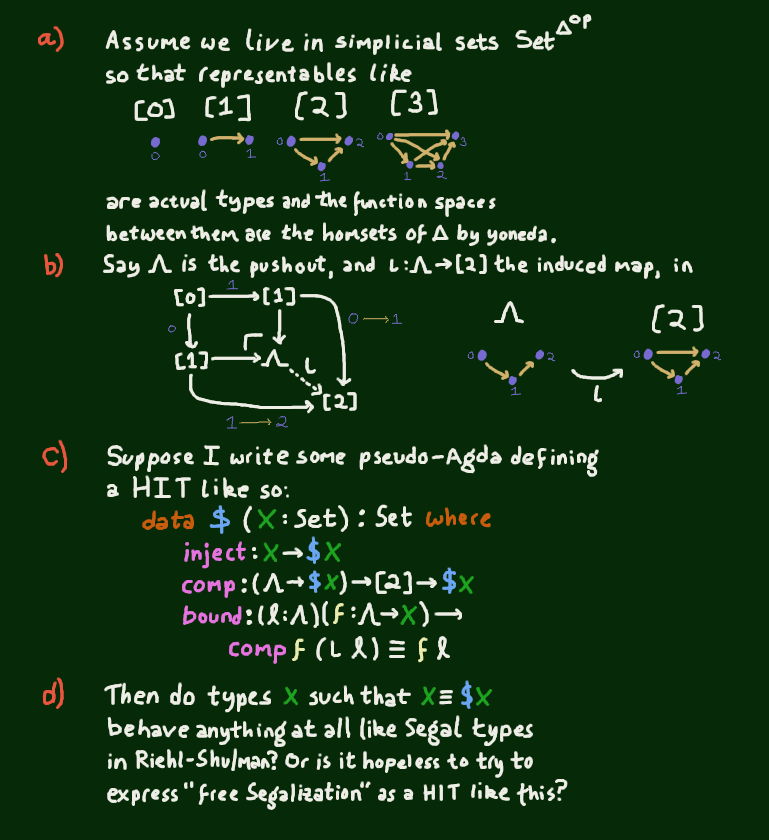 a) Assume we live in simplicial sets Set^Δ^op
so that representables like
[0] [1] [2] [3]
0 0 1 0 1 2 0 1 2 3
are actual types and the function spaces
between them are the homsets of Δ by yoneda.
b) Say Λ is the pushout, and ι:Λ→[2] the induced map, in
[0] 1 [1]
0 0→1
[1] Λ ι
[2]
1→2
Λ [2]
0 1 2 ι 0 1 2
c) Suppose I write some pseudo-Agda defining
a HIT like so:
data $ (X:Set): Set where
inject:X→$X
comp:(Λ→$X)→[2]→$X
bound:(l:Λ)(f:Λ→X)→
comp f (ι l) ≡ f l
d) Then do types X such that X≡$X
behave anything at all like Segal types
in Riehl-Shulman? Or is it hopeless to try to
express "free Segalization" as a HIT like this?